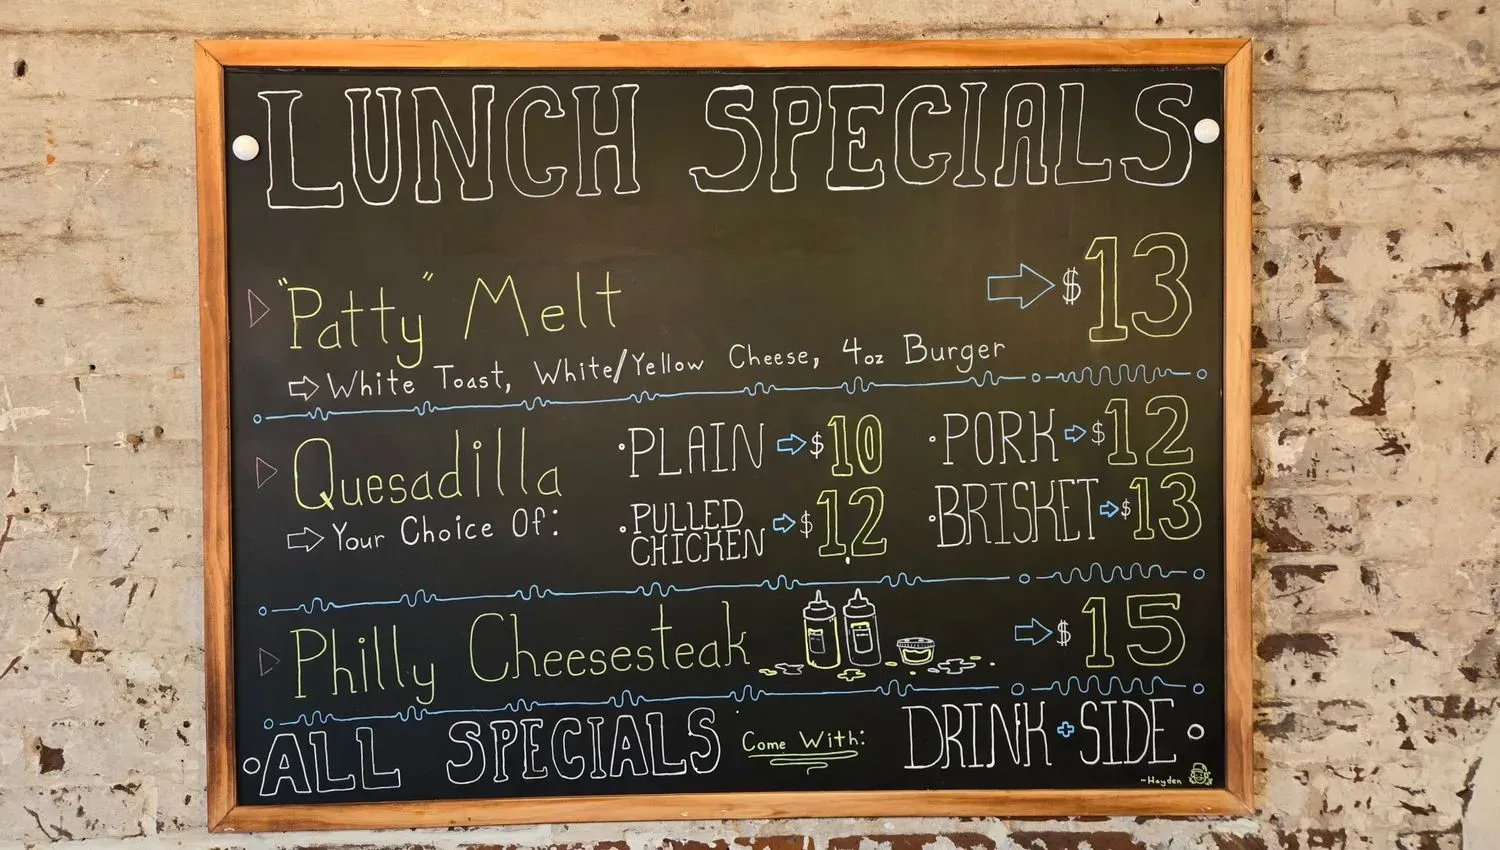 LUNCH SPECIALS
"Patty" Melt $13
White Toast, White/Yellow Cheese, 4oz Burger
Quesadilla
Your Choice Of:
·PLAIN $10
·PULLED
CHICKEN $12
·PORK $12
·BRISKET $13
Philly Cheesesteak $15
ALL SPECIALS Come With: DRINK + SIDE
-Hayden